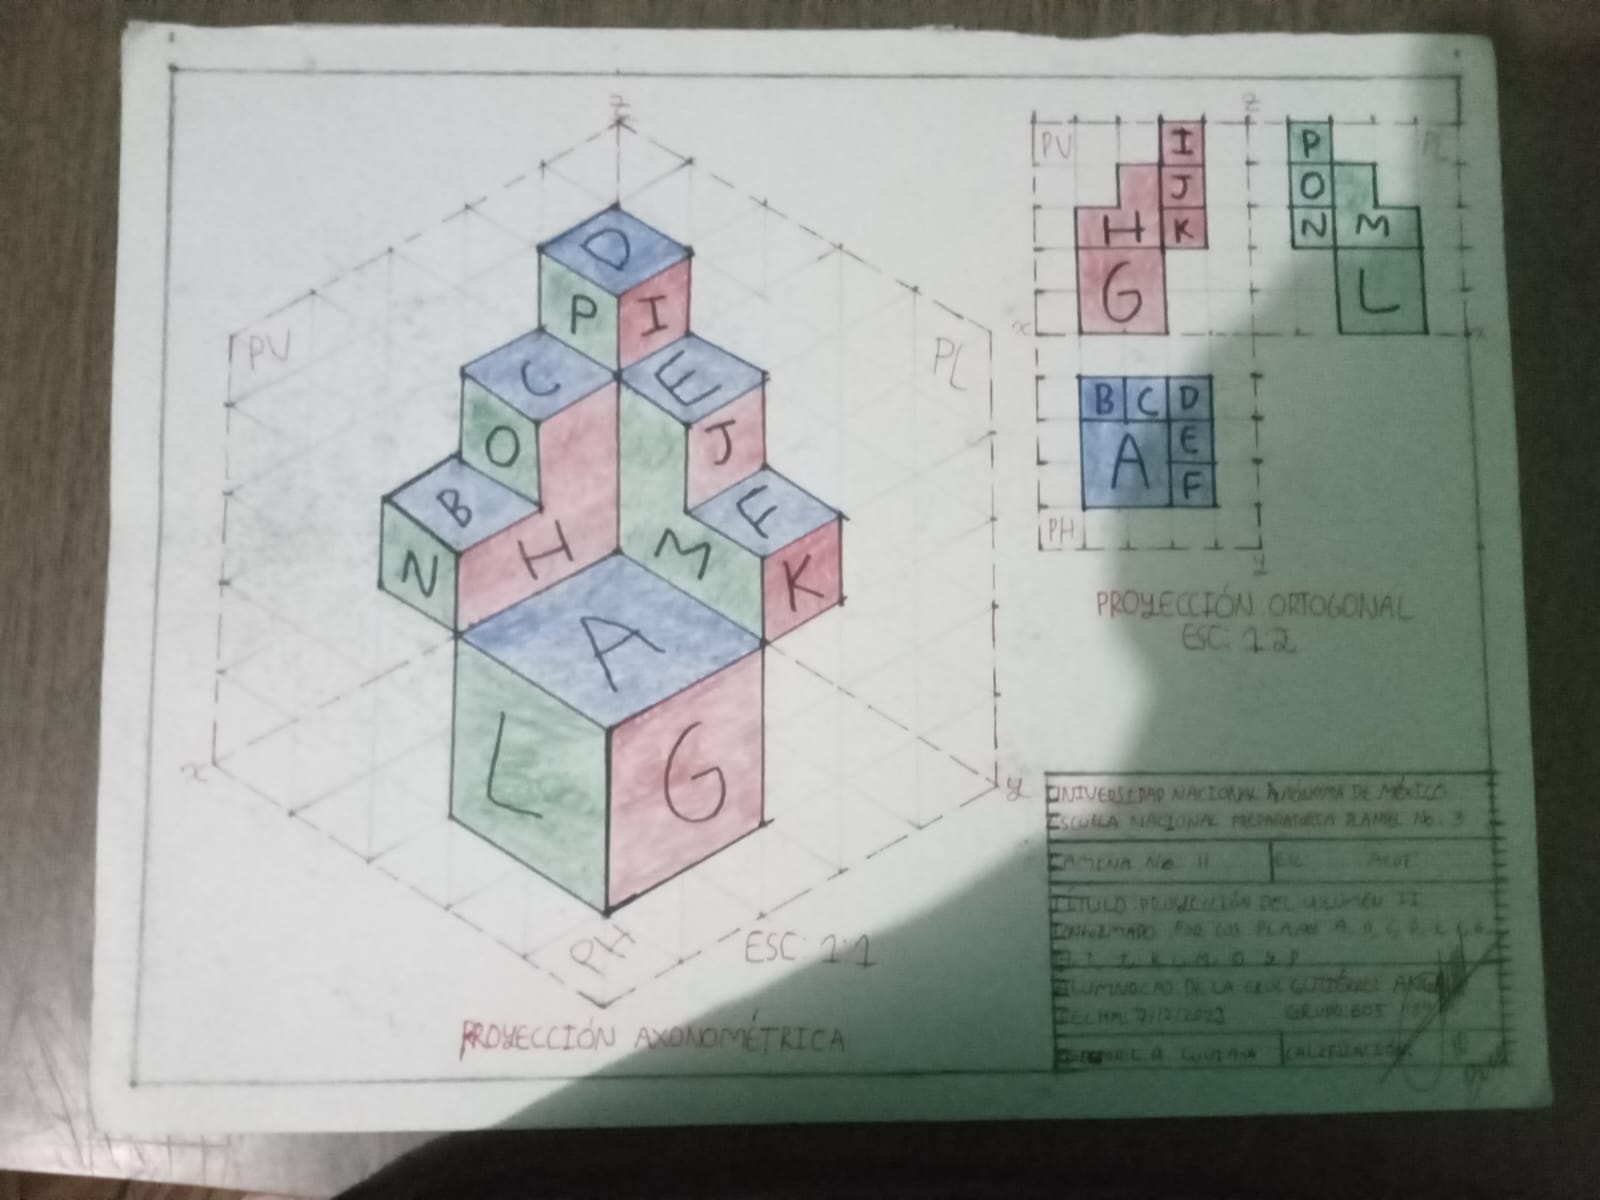 Z
PV
PL
D
P
I
C
E
O
J
B
F
N
H
M
K
A
L
G
x
y
PH
ESC: 1:1
PROYECCIÓN AXONOMÉTRICA
Z
PV
I
J
H
K
G
x
PL
P
O
N
M
L
B C D
A
E
F
PH
PROYECCIÓN ORTOGONAL
ESC: 1:2
UNIVERSIDAD NACIONAL AUTÓNOMA DE MÉXICO
ESCUELA NACIONAL PREPARATORIA PLANTEL No. 3
LAMINA No. 11
TÍTULO: PROYECCIÓN DEL VOLUMEN II
CONFORMADO POR LOS PLANOS A, B, C, D, E, F, G,
ALUMNO(A): DE LA CRUZ GUTIÉRREZ
FECHA: GRUPO: 605
CALIFICACIÓN: